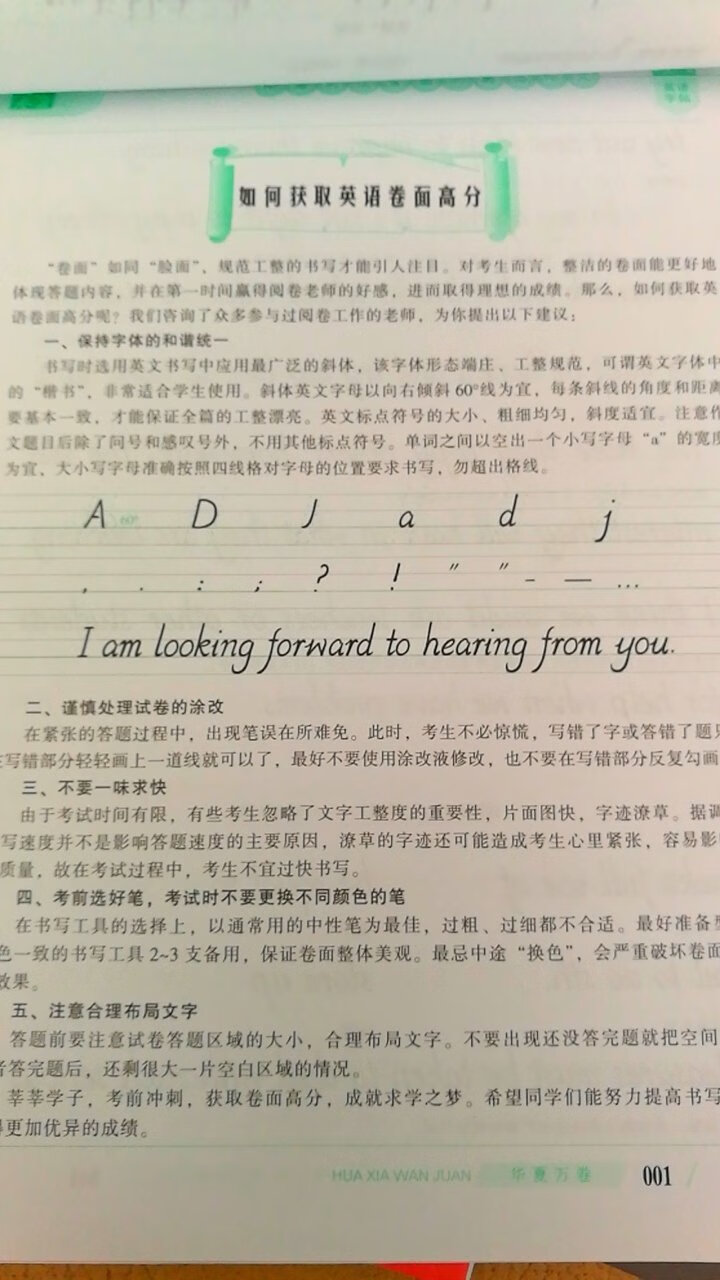 英语
字帖
如何获取英语卷面高分
“卷面”如同“脸面”，规范工整的书写才能引人注目。对考生而言，整洁的卷面能更好地
体现答题内容，并在第一时间赢得阅卷老师的好感，进而取得理想的成绩。那么，如何获取英
语卷面高分呢？我们咨询了众多参与过阅卷工作的老师，为你提出以下建议：
一、保持字体的和谐统一
书写时选用英文书写中应用最广泛的斜体，该字体形态端庄、工整规范，可谓英文字体中
的“楷书”，非常适合学生使用。斜体英文字母以向右倾斜60°线为宜，每条斜线的角度和距离
要基本一致，才能保证全篇的工整漂亮。英文标点符号的大小、粗细均匀，斜度适宜。注意作
文题目后除了问号和感叹号外，不用其他标点符号。单词之间以空出一个小写字母“a”的宽度
为宜，大小写字母准确按照四线格对字母的位置要求书写，勿超出格线。
A 60° D J a d j
, . : ; ? ! " " - — …
I am looking forward to hearing from you.
二、谨慎处理试卷的涂改
在紧张的答题过程中，出现笔误在所难免。此时，考生不必惊慌，写错了字或答错了题只
在写错部分轻轻画上一道线就可以了，最好不要使用涂改液修改，也不要在写错部分反复勾画
三、不要一味求快
由于考试时间有限，有些考生忽略了文字工整度的重要性，片面图快，字迹潦草。据调
写速度并不是影响答题速度的主要原因，潦草的字迹还可能造成考生心里紧张，容易影
质量，故在考试过程中，考生不宜过快书写。
四、考前选好笔，考试时不要更换不同颜色的笔
在书写工具的选择上，以通常用的中性笔为最佳，过粗、过细都不合适。最好准备
色一致的书写工具2~3支备用，保证卷面整体美观。最忌中途“换色”，会严重破坏卷面
效果。
五、注意合理布局文字
答题前要注意试卷答题区域的大小，合理布局文字。不要出现还没答完题就把空间
者答完题后，还剩很大一片空白区域的情况。
莘莘学子，考前冲刺，获取卷面高分，成就求学之梦。希望同学们能努力提高书写
得更加优异的成绩。
HUA XIA WAN JUAN 华夏万卷 001